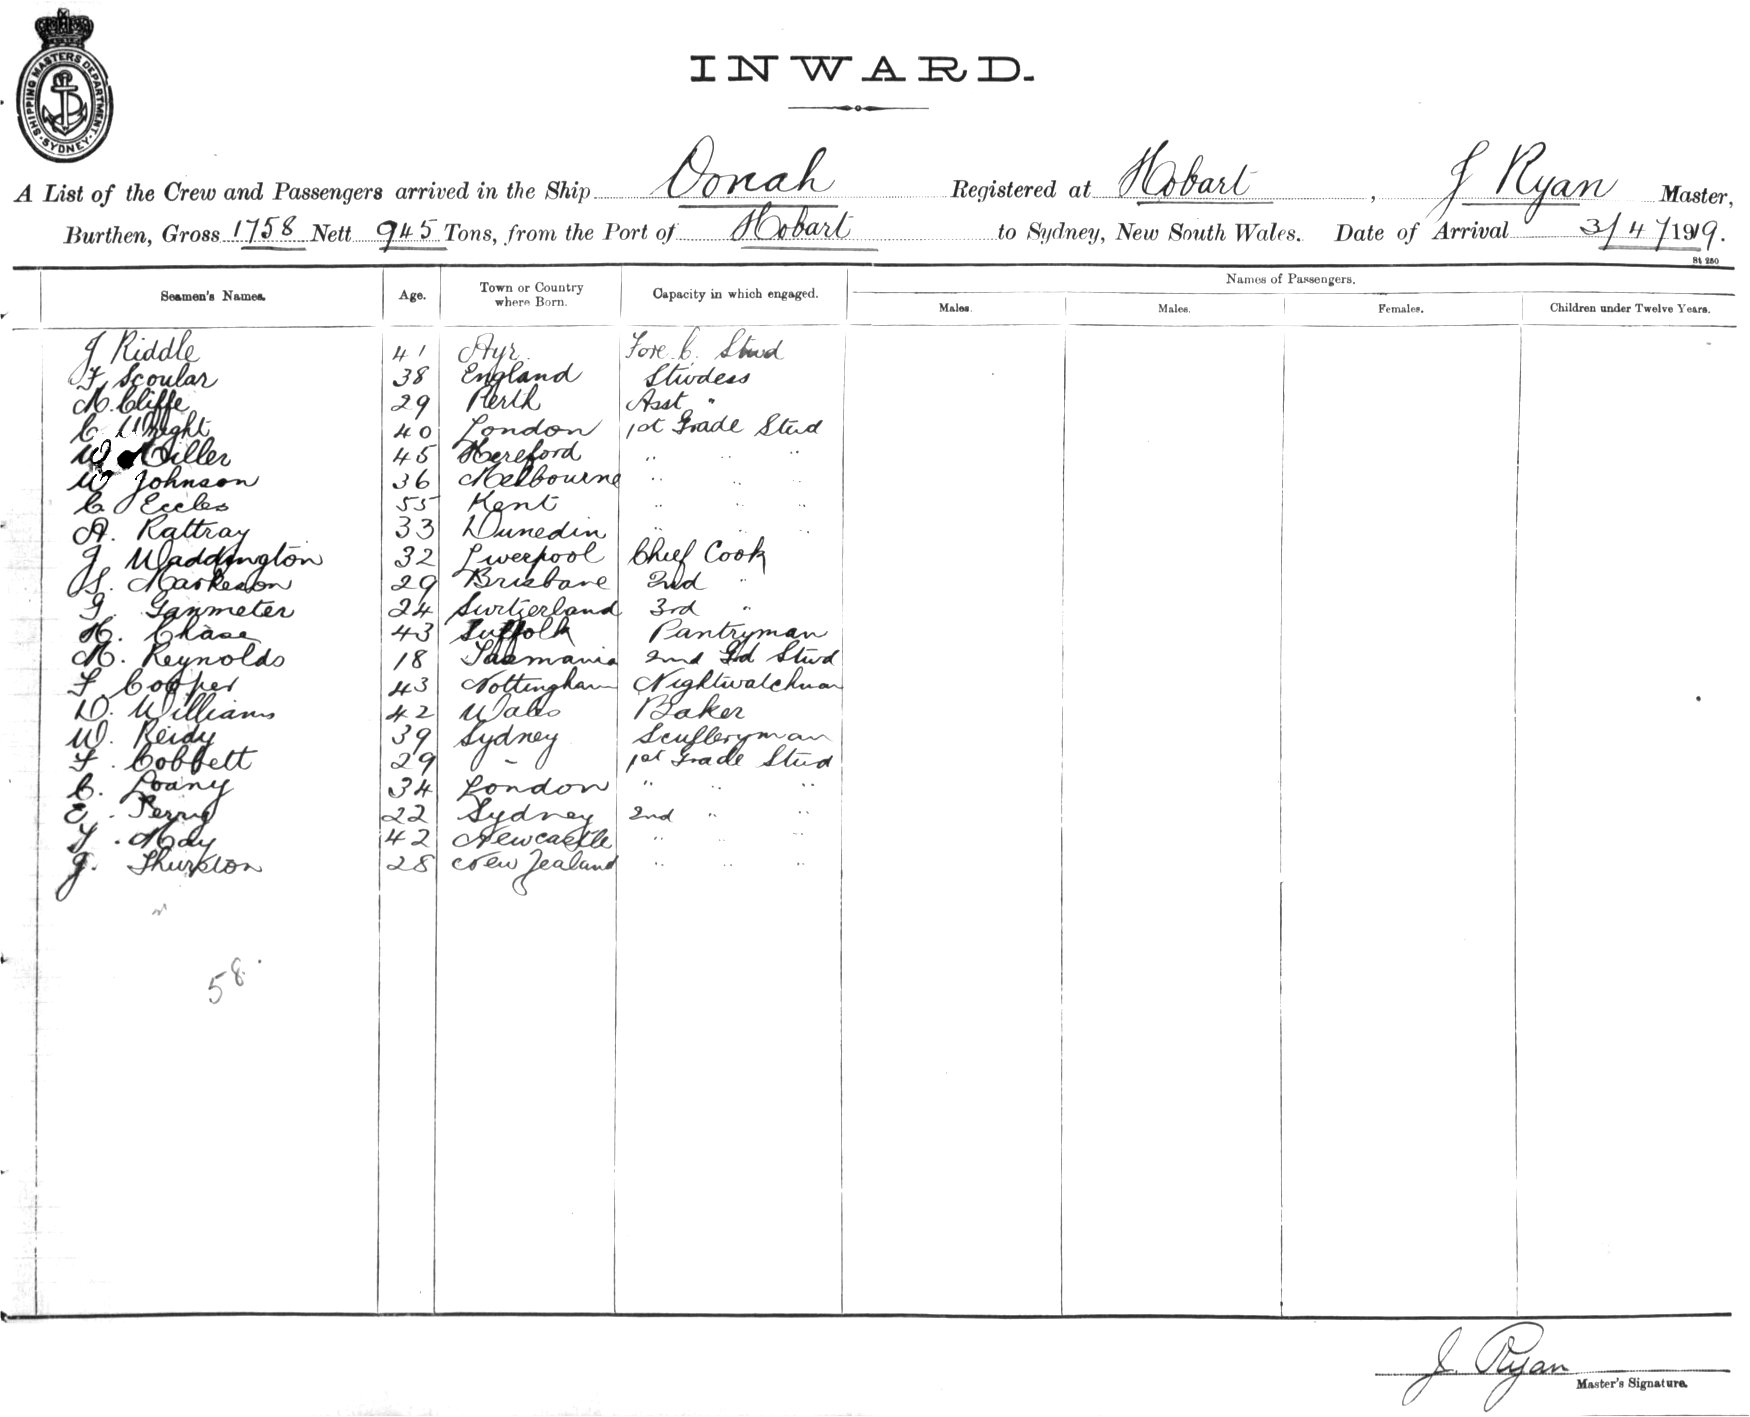 SHIPPING MASTERS DEPARTMENT. SYDNEY
INWARD.
A List of the Crew and Passengers arrived in the Ship Oonah Registered at Hobart, J Ryan Master,
Burthen, Gross 1758 Nett 945 Tons, from the Port of Hobart to Sydney, New South Wales. Date of Arrival 3/4/1919.
St 250
Seamen's Names. Age. Town or Country where Born. Capacity in which engaged. Names of Passengers.
Males. Males. Females. Children under Twelve Years.
J Riddle 41 Ayr Fore C. Stwd
F Scoular 38 England Stwdess
M. Cliffe 29 Perth Asst "
C Wright 40 London 1st Grade Stwd
W Miller 45 Hereford " " "
W Johnson 36 Melbourne " " "
C Eccles 55 Kent " " "
A. Rattray 33 Dunedin " " "
J. Waddington 32 Liverpool Chief Cook
S. Markeson 29 Brisbane 2nd "
G. Ganmeter 24 Switzerland 3rd "
H. Chase 43 Suffolk Pantryman
M. Reynolds 18 Tasmania 2nd Gd Stwd
F Cooper 43 Nottingham Nightwatchman
D. Williams 42 Wales Baker
W. Reidy 39 Sydney Sculleryman
F. Cobbett 29 " 1st Grade Stwd
C. Loany 34 London " " "
E. Perry 22 Sydney 2nd " "
T. May 42 Newcastle " " "
J. Thurston 28 New Zealand " " "
58.
J. Ryan
Master's Signature.